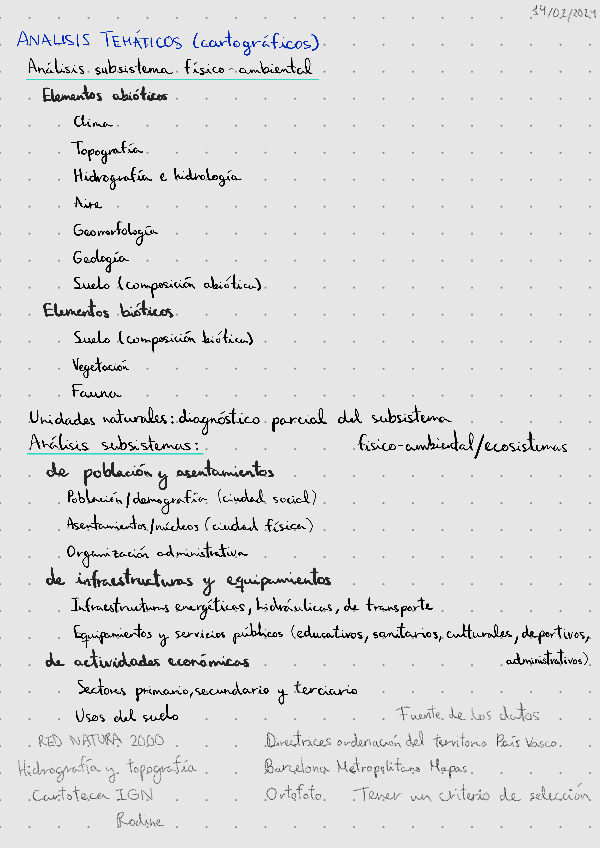 14/02/2024
ANALISIS TEMÁTICOS (cartográficos)
Análisis subsistema físico-ambiental
Elementos abióticos
Clima
Topografía
Hidrografía e hidrología
Aire
Geomorfología
Geología
Suelo (composición abiótica)
Elementos bióticos
Suelo (composición biótica)
Vegetación
Fauna
Unidades naturales: diagnóstico parcial del subsistema
físico-ambiental/ecosistemas
Análisis subsistemas:
de población y asentamientos
Población/demografía (ciudad social)
Asentamientos/núcleos (ciudad física)
Organización administrativa
de infraestructuras y equipamientos
Infraestructuras energéticas, hidráulicas, de transporte
Equipamientos y servicios públicos (educativos, sanitarios, culturales, deportivos,
administrativos)
de actividades económicas
Sectores primario, secundario y terciario
Usos del suelo
Fuente de los datos
RED NATURA 2000
Directrices ordenación del territorio País Vasco.
Hidrografía y topografía
Barcelona Metropolitana Mapas.
Cartoteca IGN
Ortofoto. Tener un criterio de selección